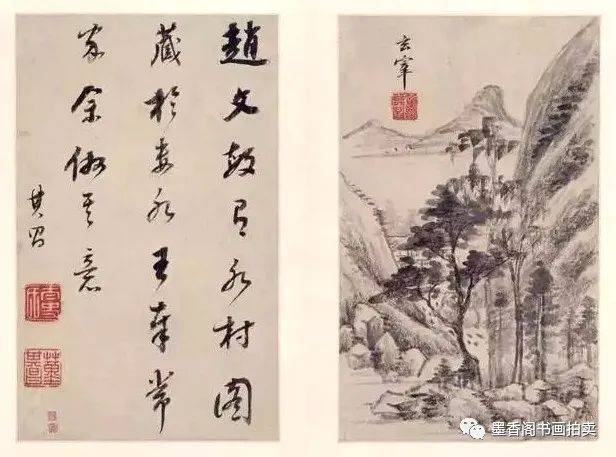 趙文敏有水村图
藏於婁水王奉常
家余倣其意
其昌
玄宰
墨香阁书画拍卖